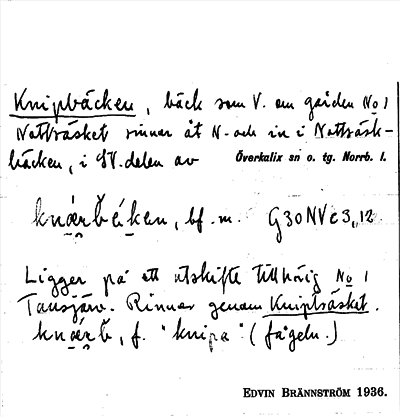 Knipbäcken, bäck som V. om gården No 1
Nattträsket rinner åt N. och in i Nattträsk-
bäcken, i SV. delen av Överkalix sn o. tg. Norrb. l.
bf. m. G30NVc3,12.
Ligger på ett utskifte tillhörig No 1
Tansjärv. Rinner genom Kniptträsket.
f. "knipa" (fågeln.)
EDVIN BRÄNNSTRÖM 1936.